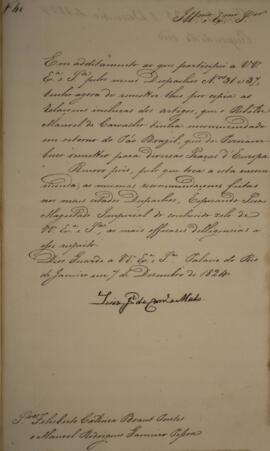 Ill.mos e Ex.mos Snr.es
Em additamento ao que participei a VV.
Ex.a e S.a pelos meus Despachos N.os 31 e 37,
tenho agora de remetter-lhes por copia as
relaçoens inclusas dos artigos, que o Rebelde
Manoel de Carvalho tinha encommendado
em retorno do Páo Brazil, que de Pernam
buco remetteo para diversas Praças d'Europa.
Renovo pois, pelo que toca a esta encom
menda, as mesmas recommendaçoens feitas
nos meus citados Despachos, Esperando Sua
Magestade Imperial do conhecido zelo de
VV. Ex.a e S.a, as mais efficazes delligencias a
esse respeito.
Deos Guarde a VV. Ex.a e S.a Palacio do Rio
de Janeiro em 7 de Dezembro de 1824.
Luiz Jozé de Carv.o e Mello
Snr.es Felisberto Caldeira Brant Pontes
e Manoel Rodrigues Gameiro Pessoa